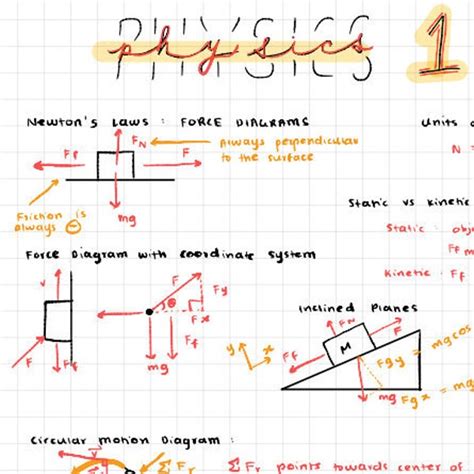 PHYSICS
physics 1
Newton's Laws : FORCE DIAGRAMS
Units
N =
FN
Always perpendicular
to the surface
Ff
F
mg
Friction is
always ⊖
Static vs Kinetic
Static :
Ff
Kinetic : Ff
Force Diagram with coordinate system
V
F
Ff
F
θ
Fy
Fx
Ff
mg
Inclined Planes
FN
F
Ff
M
y
x
Fgy = mg cos
mg
Fgx = mg
Circular motion Diagram :
V
Σ Fr
Σ Fr points towards center of